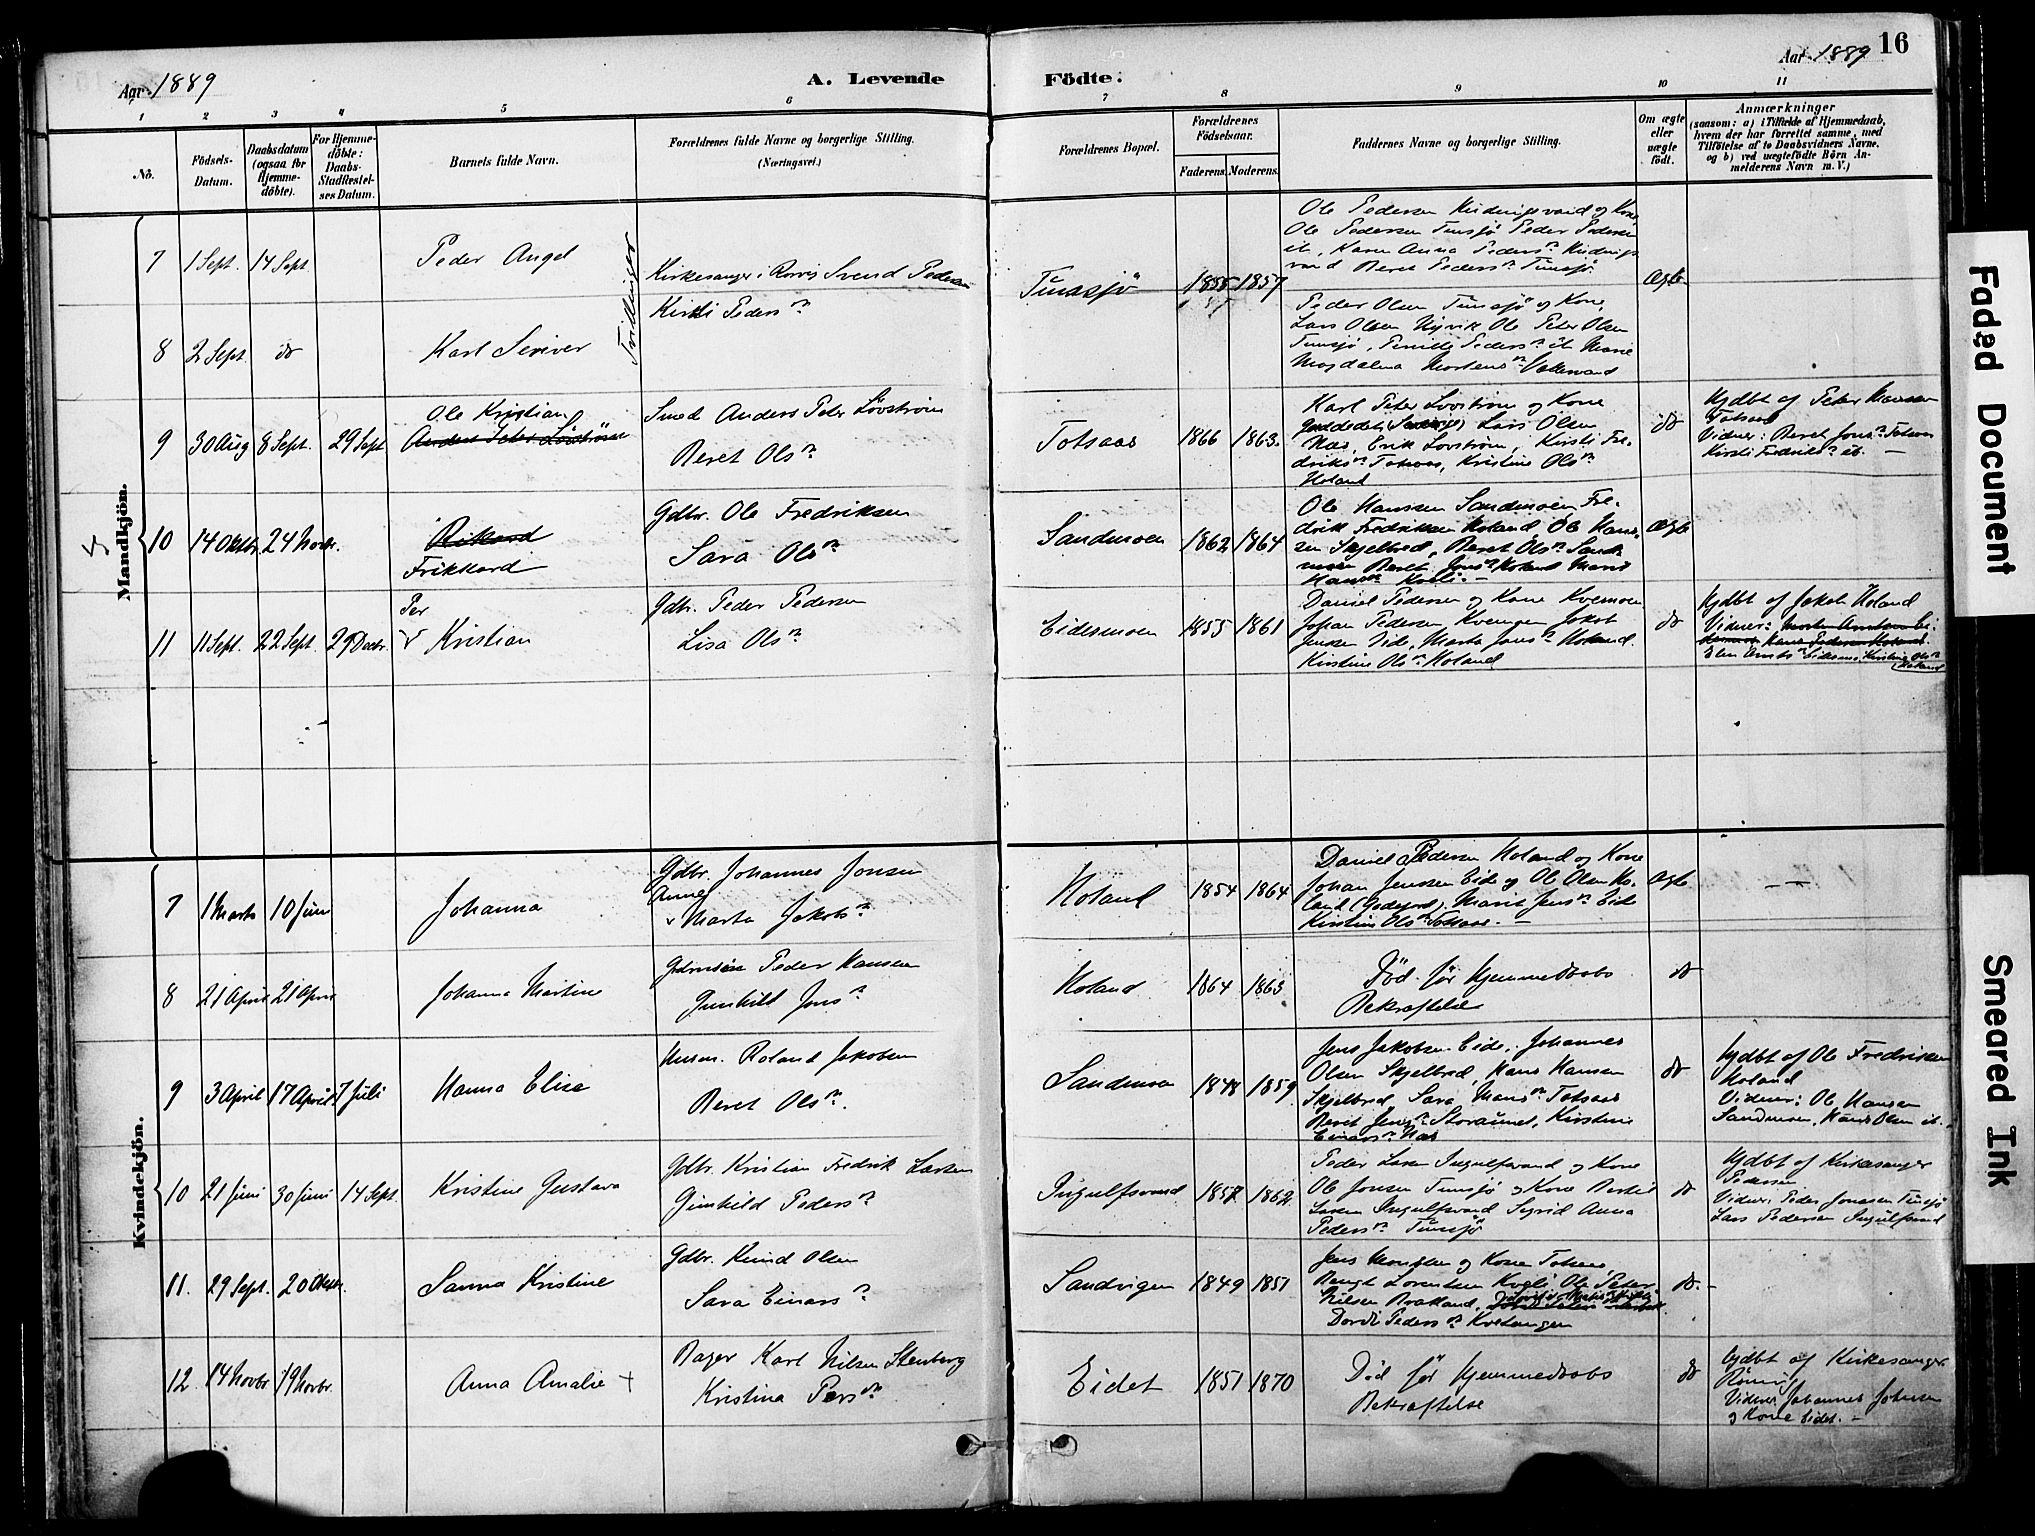 16
Aar 1889
A. Levende Födte.
Aar 1889
1 2 3 4 5 6 7 8 9 10 11
No.
Födsels-Datum.
Daabsdatum (ogsaa for Hjemmedöbte).
For Hjemmedöbte: Daabs-Stadfæstelses Datum.
Barnets fulde Navn.
Forældrenes fulde Navne og borgerlige Stilling.
(Næringsvei.)
Forældrenes Bopæl.
Forældrenes Födselsaar.
Faderens. Moderens.
Faddernes Navne og borgerlige Stilling.
Om ægte eller uægte födt.
Anmærkninger
(saasom: a) i Tilfælde af Hjemmedaab,
hvem der har forrettet samme, med
Tilföielse af to Daabsvidners Navne,
og b) ved uægtefödte Börn Anmelderens Navn m. V.)
Mandkjön.
7 1 Sept. 14 Sept. Peder Angel
Tvillinger
Kirkesanger i Rørvig Svend Pedersen
Kirsti Pedersn
Tunsjö 1855 1857
Ole Pedersen
og Kone
Ole Pedersen Tunsjö Peder Pedersen
ib, Karen Anna Pedersn
Beret Pedersn Tunsjö
Ægte
8 2 Sept. do Karl Seviver
Peder Olsen Tunsjö og Kone,
Lars Olsen Nyvik Ole Peter Olsen
Tunsjö, Pedersn ib Marie
Magdalena Mortensn
9 30 Aug 8 Sept. 29 Sept
Ole Kristian
Anders Peter Lövström
Smed Anders Peter Lövström
Beret Olsn
Totsaas 1866 1863.
Karl Peter Lovström og Kone
Lars Olsen
Næs, Erik Lovström, Kirsti Fredriksn Totsaas, Kristine Olsn
Holand
do
Hjdbt af Peter Hansen
Totsaas
Vidner: Beret Jonsn Totsaas
Kirsti Fredriksn ib.
10 14 Oktbr. 24 Novbr.
Rikard
Frikkard
Gdbr. Ole Fredriksen
Sara Olsn
Sandmoen 1862 1864
Ole Hanssen Sandmoen Fredrik Fredriksen Holand Ole Hansen Skjelbred, Beret Olsn Sandmoen Beret Jonsn Holand Marit
Hansn Kveli.
Ægte
11 11 Sept. 22 Sept. 29 Decbr.
Per
Kristian
Gdbr. Peder Pedersen
Lisa Olsn
Eidesmoen 1855 1861
Daniel Pedersen og Kone Kvemoen
Johan Pedersen, Kvengen Jakob
Jensen Eide, Marta Jonsn Holand.
Kirstine Olsn Holand
do
Hjdbt af Jakob Holand
Vidner:
Kirstine Olsn
Holand
Kvindekjön.
7 1 Marts 10 Juni Johanna
Gdbr. Johannes Jonsen
Anne
Marta Jakobsn
Holand 1854 1864
Daniel Pedersen Holand og Kone
Johan Jenssen Eide og Ole Olsen Holand (Godejord). Marit Jensn Eide
Kirstine Olsn Totsaas.
Ægte
8 21 April 21 April Johanna Martine
Peder Hansen
Gunhild Jonsn
Holand 1864 1863
Död för Hjemmedaabs
Bekræftelse
do
9 3 April 17 April 7 Juli Hanna Elise
Husm. Roland Jakobsen
Beret Olsn.
Sandmoen 1848 1859.
Jens Jakobsen Eide, Johannes
Olsen Skjelbred, Hans Hansen
Skjelbred Sara Hansn Totsaas
Beret Jensn Storaunet, Kirstine
Einarsn Næs
do
Hjdbt af Ole Fredriksen
Holand
Vidner: Ole Hansen
Sandmoen, Hans Olsen ib.
10 21 Juni 30 Juni 14 Sept. Kristine Gustava
Gdbr. Kristian Fredrik Larsen
Gunhild Pedersn
Ingulfsvand 1857 1862.
Peder Larsen Ingulfsvand og Kone
Ole Jonsen Tunsjö og Kone Bertil
Larsen Ingulfsvand Sigrid Anna
Pedersn Tunsjö
do
Hjdbt af Kirkesanger
Pedersen
Vidner: Peder Jonassen Tunsjö
Lars Pedersen Ingulfsvand
11. 29 Sept. 20 Oktbr. Sanna Kristine
Gdbr. Knud Olsen
Sara Einarsn
Sandvigen 1849 1851
Jens og Kone Totsaas,
Bengt Lorentsen Kveli, Ole Peter
Nilsen Bratland,
Dordi Pedersn Kvetangen
do.
12. 14 Novbr. 19 Novbr. Anna Amalie +
Bager Karl Nilsen Stenberg
Kristina Persdr
Eidet 1851 1870
Död för Hjemmedaabs
Bekræftelse
do
Hjdbt af Kirkesanger
Vidner Johannes Johnsen
og Kone Eidet.
Faded Document
Smeared Ink